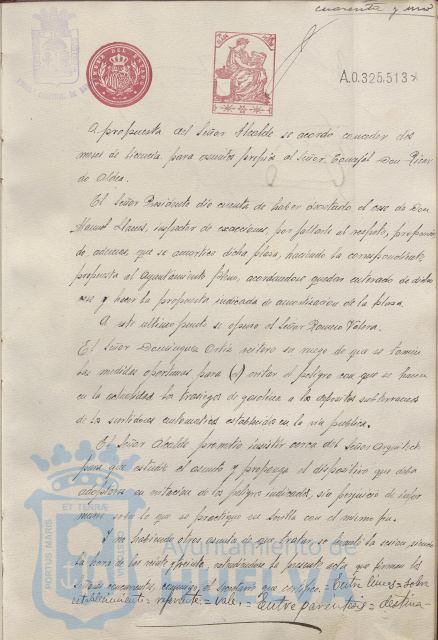 cuarenta y uno
TIMBRE DEL ESTADO
A.0.325.513
A propuesta del Señor Alcalde se acordó conceder dos
meses de licencia para asuntos propios al Señor Concejal Don
de Aldea.
El Señor Presidente dió cuenta de haber decretado el cese de Don
Manuel inspector de exacciones, por faltarle al respeto,
además, que se amortice dicha plaza, haciendo la correspondiente
propuesta al Ayuntamiento Pleno, acordándose quedar enterado de dicho
cese y hacer la propuesta indicada de amortización de la plaza.
A este último punto se opuso el Señor Romero
El Señor Domínguez Ortiz reiteró su ruego de que se tomen
las medidas oportunas para (-) evitar el peligro con que se hacen
en la actualidad los trasiegos de gasolina a los depósitos subterráneos
de los surtidores automáticos establecidos en la vía pública.
El Señor Alcalde prometió insistir cerca del Señor Arquitecto
para que estudie el asunto y proponga el dispositivo que deba
adoptarse en evitación de los peligros indicados, sin perjuicio de
lo que se practique en Sevilla con el mismo fin.
Y no habiendo otros asuntos de que tratar, se levantó la sesión, siendo
la hora de las veinte extendiéndose la presente acta que firman los
Señores concurrentes, conmigo, el Secretario que certifico. = Entre líneas = sobre
establecimiento = referente = Vale. = Entre paréntesis = destina-
PORTUS MARIS
ET TERRAE
CUSTODIA
Ayuntamiento de
HUELVA